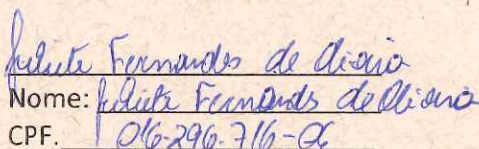 Juliete Fernandes de Oliveira
Nome: Juliete Fernandes de Oliveira
CPF. 016-296-716-06